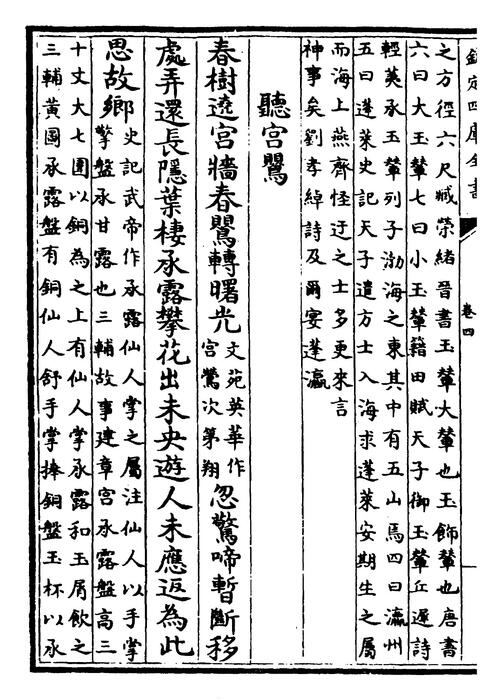 欽定四庫全書
卷四
之方徑六尺臧榮緒晉書玉輦大輦也玉飾輦也唐書
六曰大玉輦七曰小玉輦籍田賦天子御玉輦丘遲詩
輕英承玉輦列子渤海之東其中有五山焉四曰瀛州
五曰蓬萊史記天子遣方士入海求蓬萊安期生之屬
而海上燕齊怪迂之士多更來言
神事矣劉孝綽詩及爾宴蓬瀛
聽宮鸎
春樹遶宮牆春鸎轉曙光文苑英華作宮鶯次第翔忽驚啼暫斷移
處弄還長隱葉棲承露攀花出未央遊人未應返為此
思故鄉史記武帝作承露仙人掌之屬注仙人以手掌
擎盤承甘露也三輔故事建章宮承露盤高三
十丈大七圍以銅為之上有仙人掌承露和玉屑飲之
三輔黃圖承露盤有銅仙人舒手掌捧銅盤玉杯以承